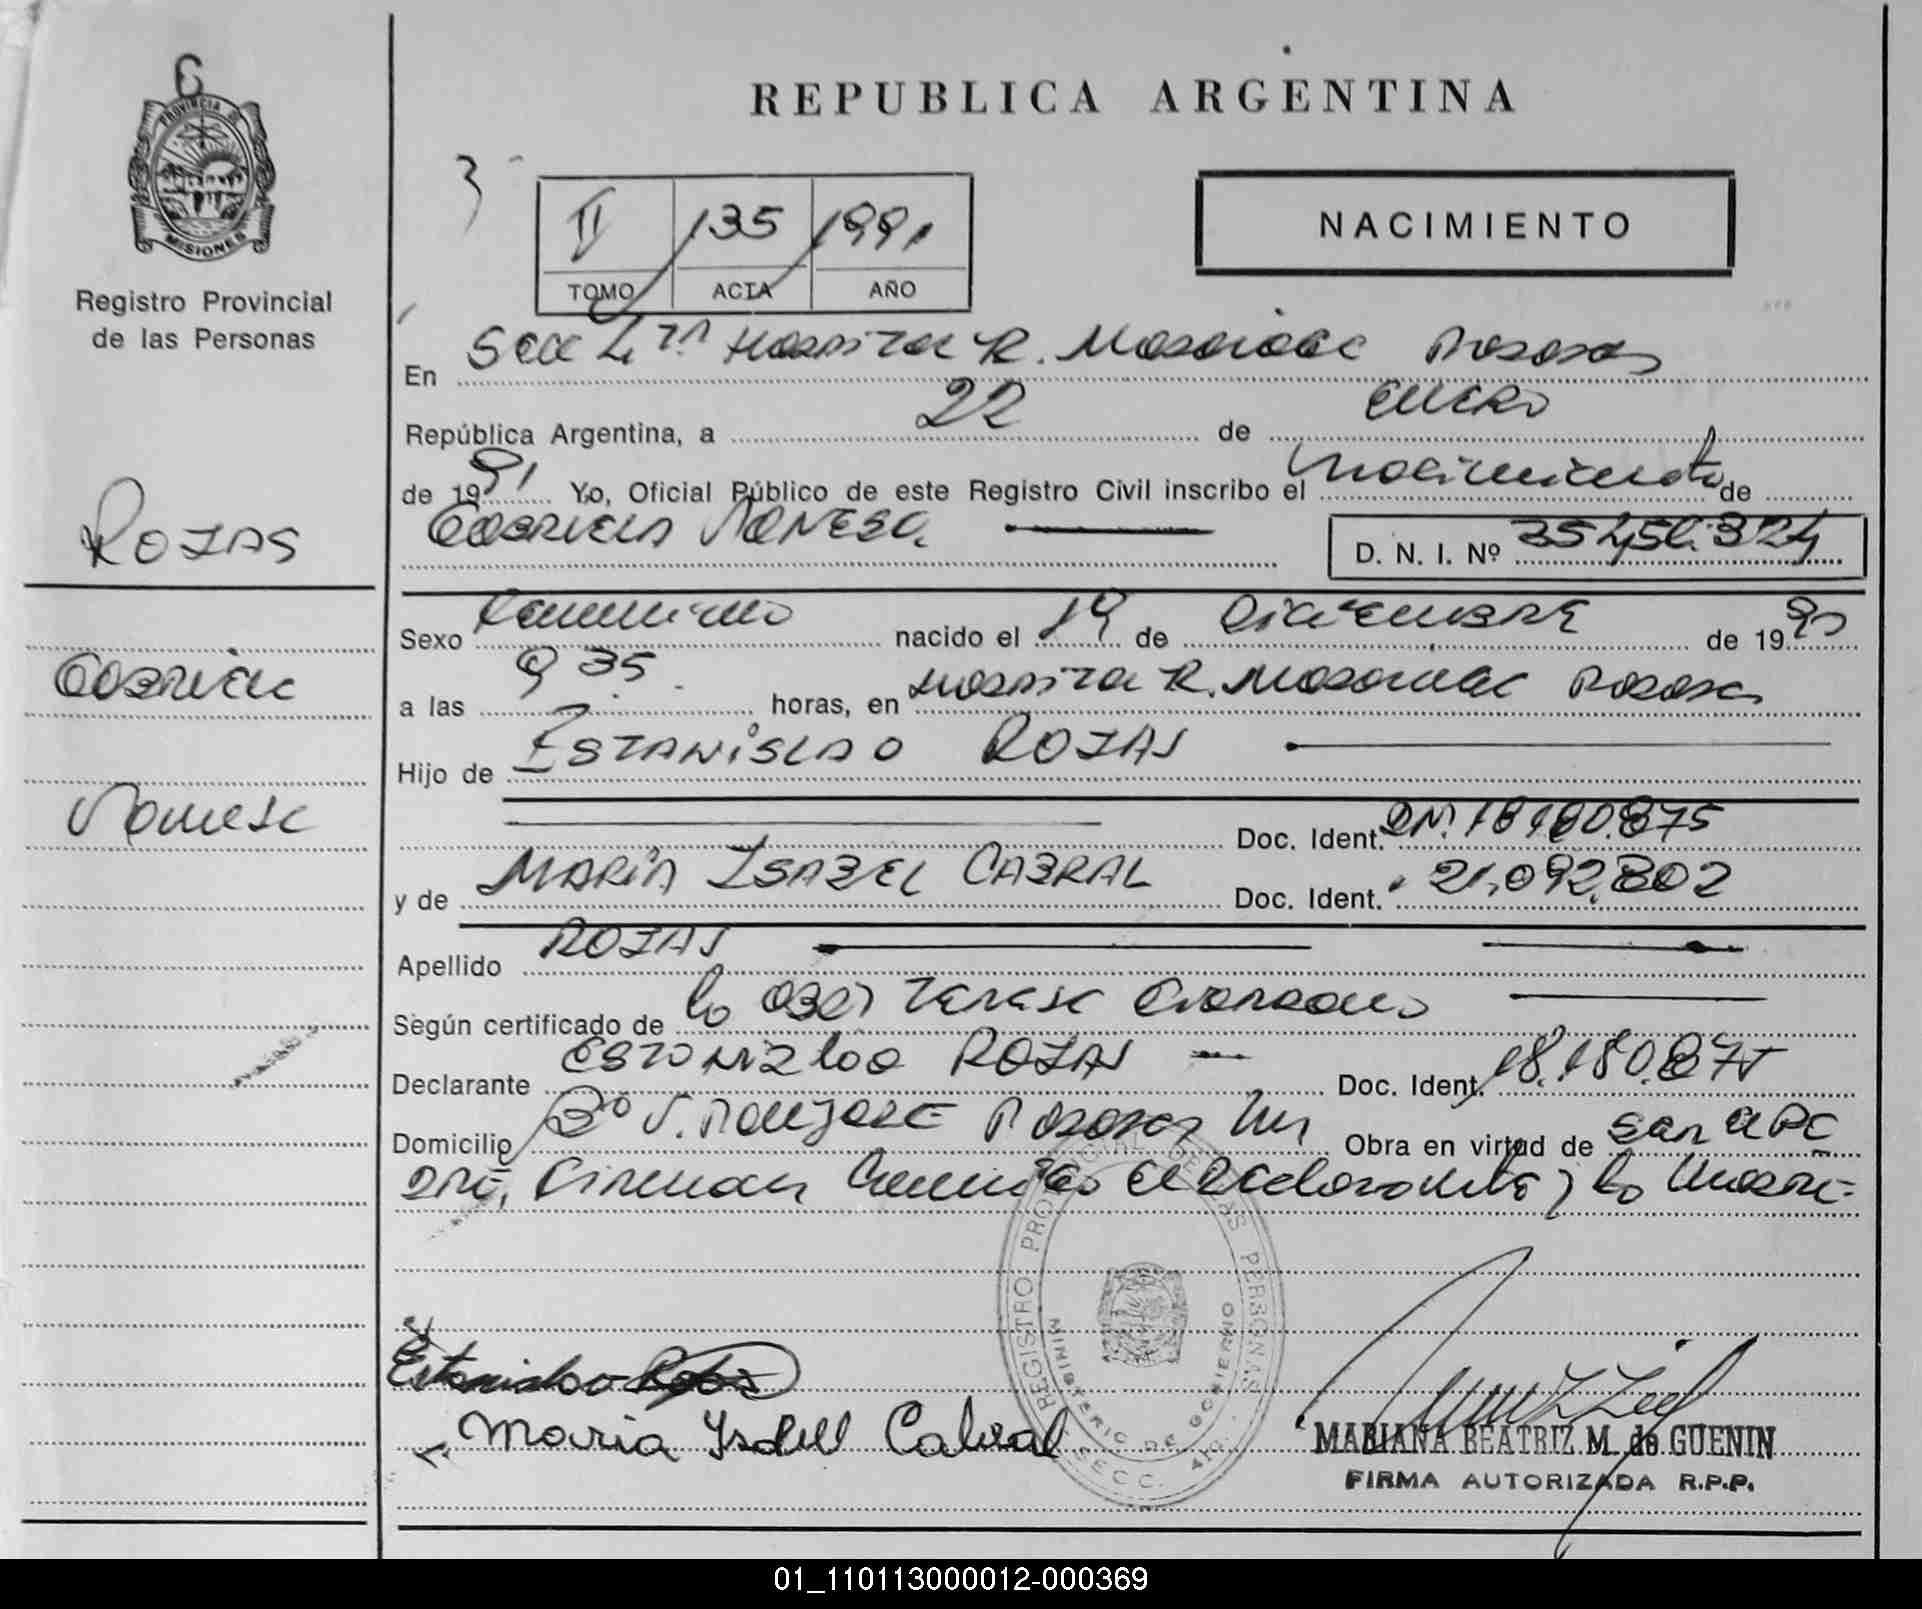 6
PROVINCIA D
MISIONES
Registro Provincial
de las Personas
REPUBLICA ARGENTINA
3
II 135 1991
TOMO ACTA AÑO
NACIMIENTO
En Secc 4ta Hospital R. Madariaga Posadas
República Argentina, a 22 de Enero
de 1991 Yo, Oficial Público de este Registro Civil inscribo el Nacimiento de
Gabriela Vanesa D. N. I. Nº 35.456.324
ROJAS
Sexo Femenino nacido el 19 de Diciembre de 1990
Gabriela
a las 9 35 horas, en Hospital R. Madariaga Posadas
Hijo de ESTANISLAO ROJAS
Vanesa
Doc. Ident. DNI 18180.875
y de MARIA ISABEL CABRAL Doc. Ident. 21.092.802
Apellido ROJAS
Según certificado de la Obst Teresa
Declarante Estanislao ROJAS Doc. Ident. 18.180.875
Domicilio Bº Posadas Mns Obra en virtud de
Firman el Declarante y la Madre
Estanislao Rojas
Maria Isabel Cabral
REGISTRO PROVINCIAL DE LAS PERSONAS
MINISTERIO DE GOBIERNO
SECC. 4TA.
MARIANA BEATRIZ M. de GUENIN
FIRMA AUTORIZADA R.P.P.
01_110113000012-000369